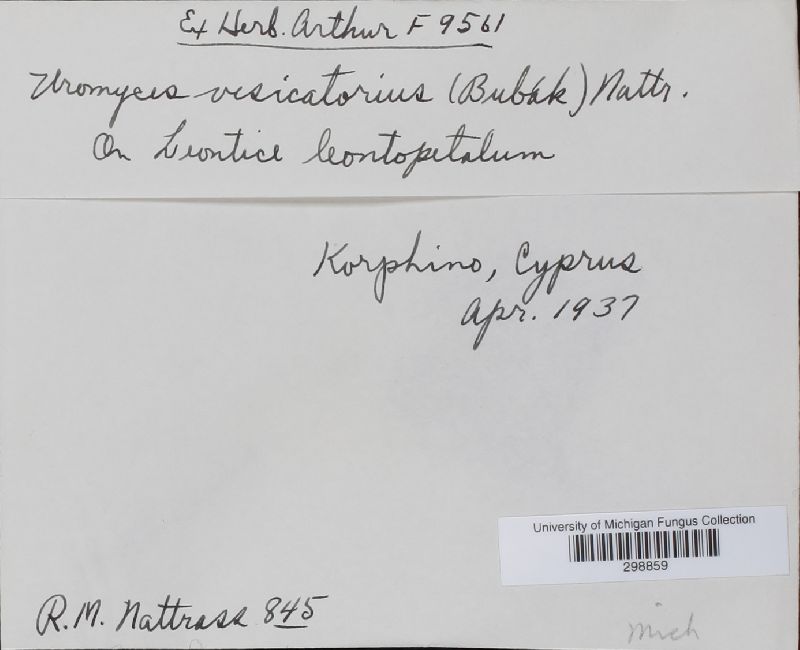 Ex Herb. Arthur F 9561
Uromyces vesicatorius (Bubák) Nattr.
On Leontice leontopetalum
Korphino, Cyprus
Apr. 1937
University of Michigan Fungus Collection
298859
R.M. Nattrass 845
Mich